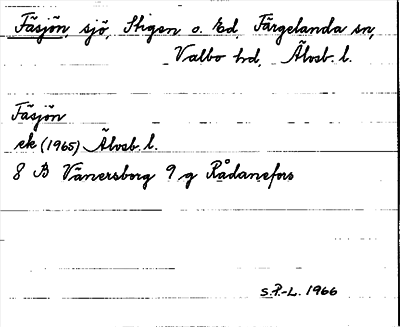 Fäsjön, sjö, Stigen o. Ed, Färgelanda sn,
Valbo hd, Älvsb. l.
Fäsjön
ek (1965) Älvsb. l.
8 B Vänersborg 9 g Rådanefors
S.P.-L. 1966